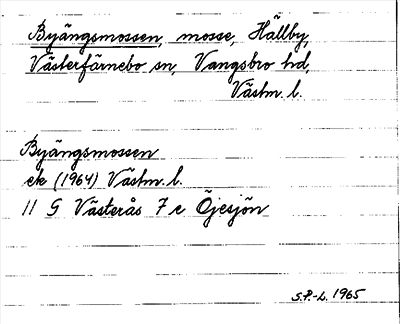 Byängsmossen, mosse, Hällby,
Västerfärnebo sn, Vangsbro hd,
Västm. l.
Byängsmossen
ek (1964) Västm. l.
11 G Västerås 7 c Öjesjön
S.P.-L. 1965